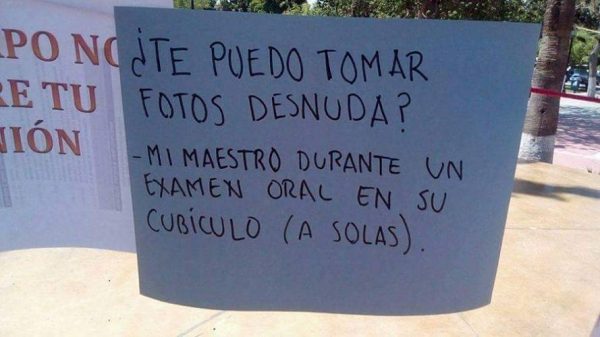 PO NO
RE TU
NIÓN
¿TE PUEDO TOMAR
FOTOS DESNUDA?
- MI MAESTRO DURANTE UN
EXAMEN ORAL EN SU
CUBÍCULO (A SOLAS).